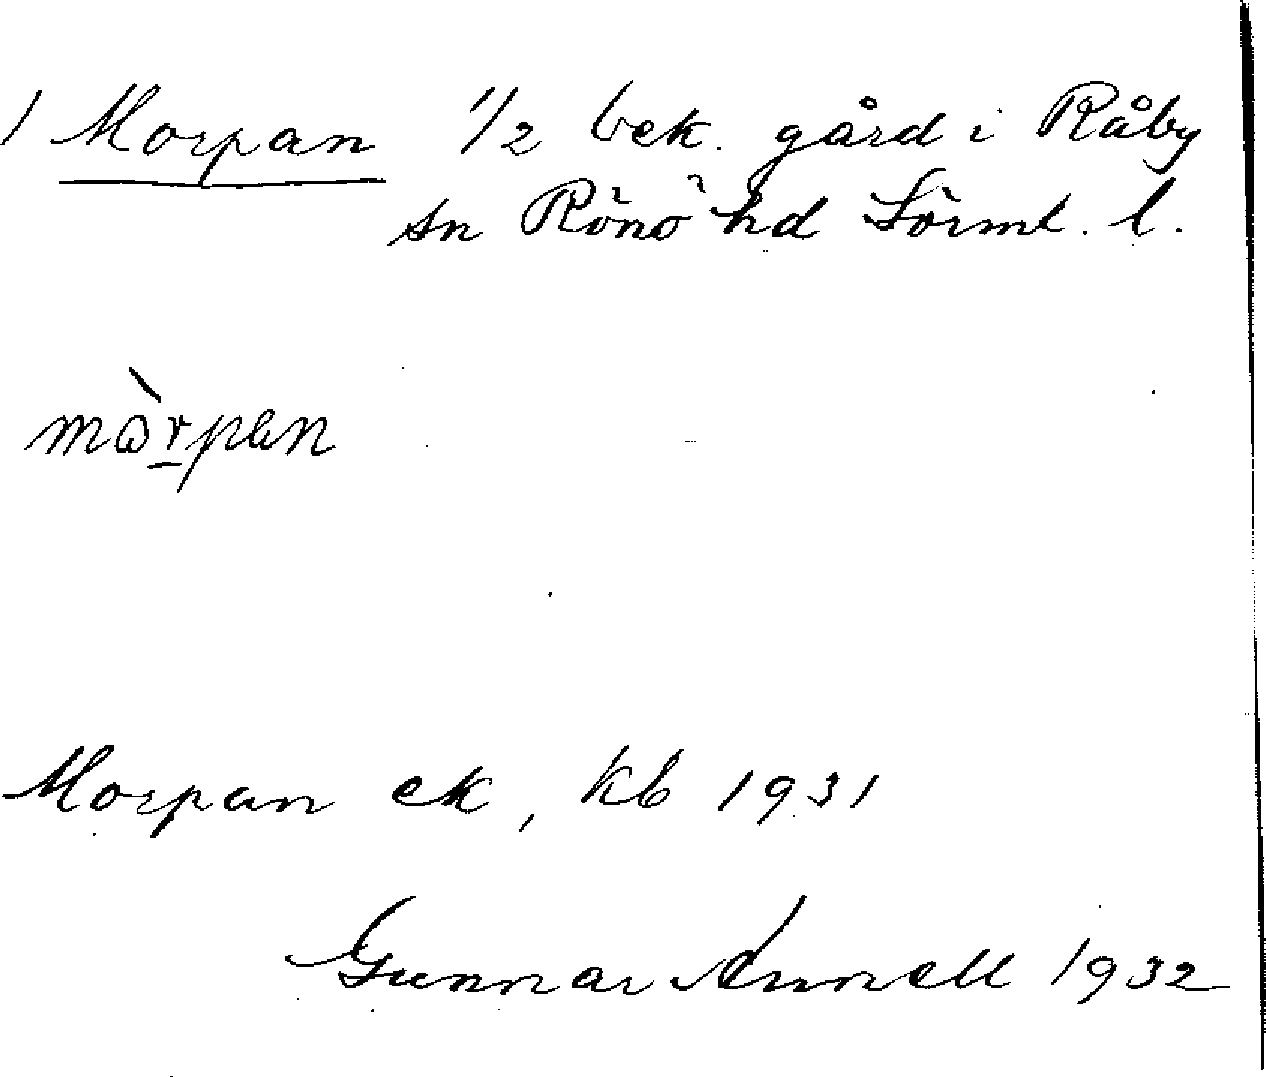 1 Morpan 1/2 bek. gård i Råby
sn Rönö hd Sörml. l.
mòrpan
Morpan ek, kb 1931
Gunnar Annell 1932